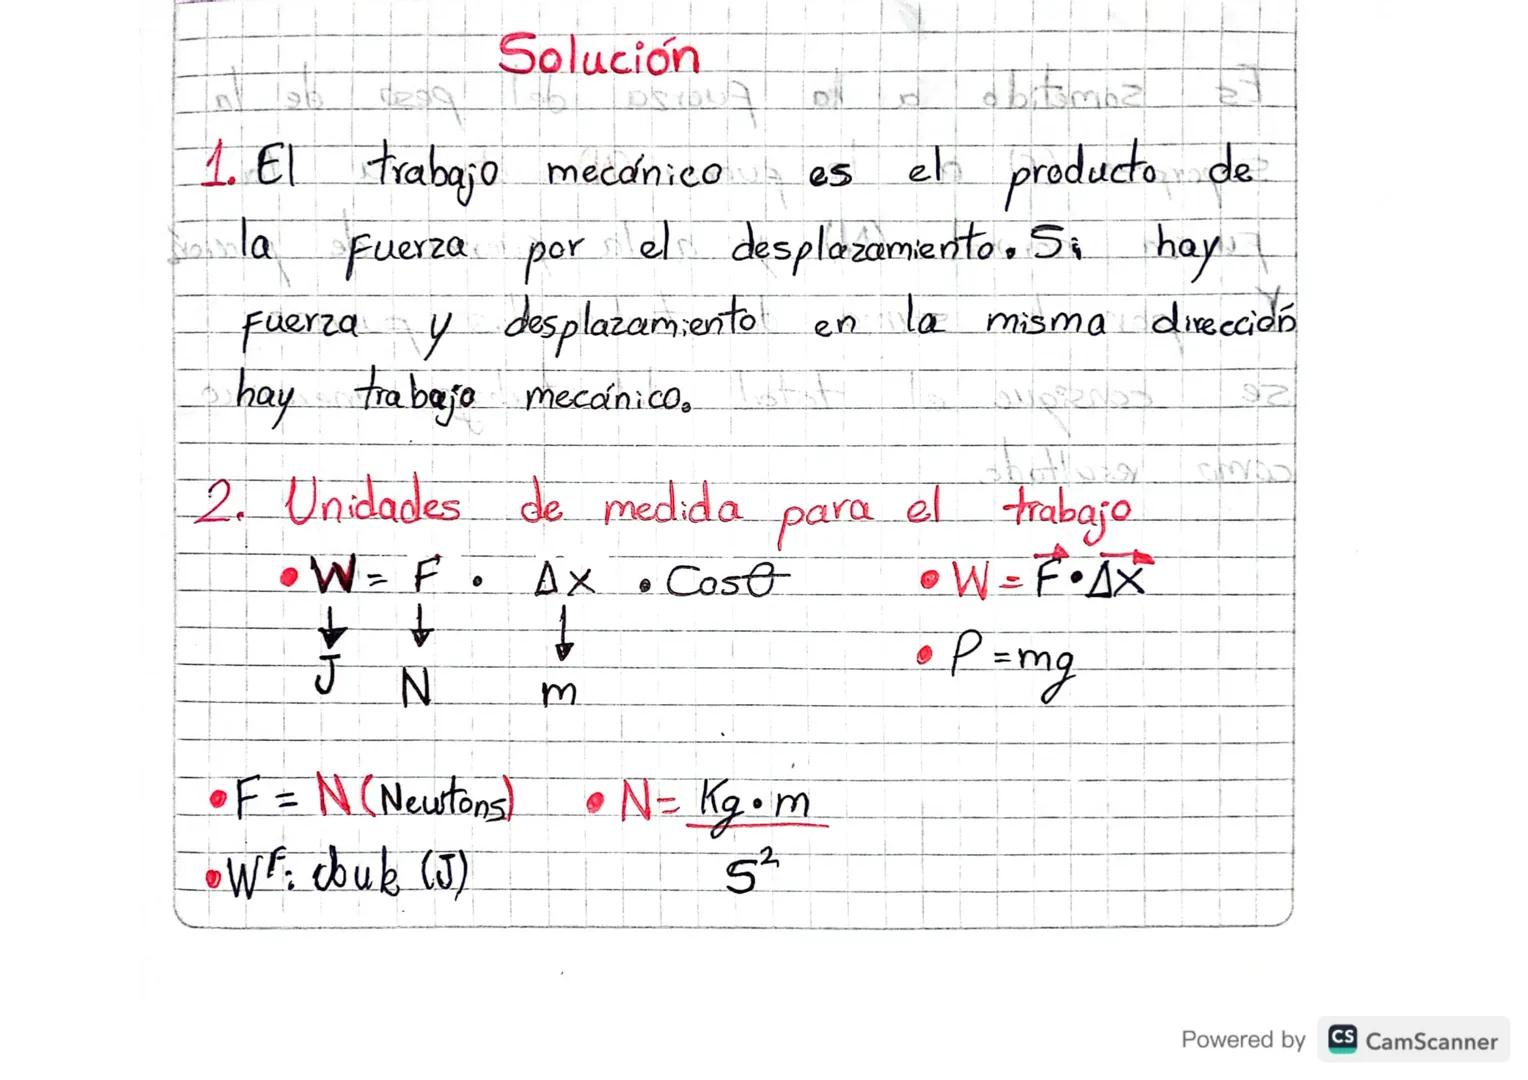 Solución
1. El trabajo mecánico es el producto de
la fuerza por el desplazamiento. Si hay
fuerza y desplazamiento en la misma dirección
hay trabajo mecánico.
2. Unidades de medida para el trabajo
• W = F • Δx • Cosθ
↓ ↓ ↓
J N m
• W = F⃗ • Δx⃗
• P = mg
• F = N (Newtons) • N = Kg • m / S²
• Wᶠ: (J)
Powered by CS CamScanner